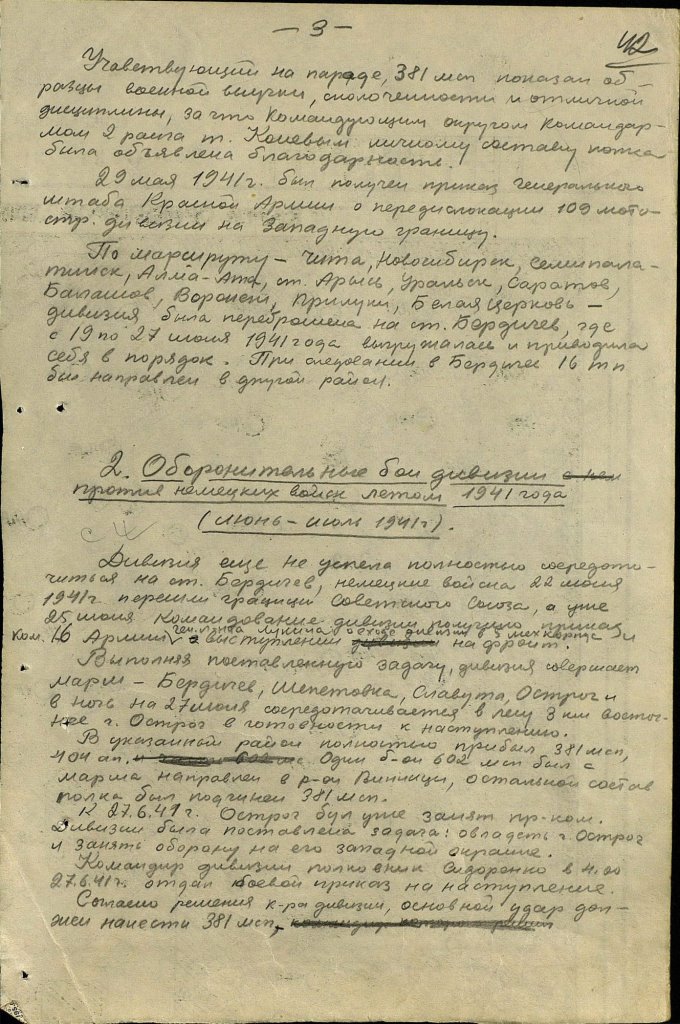 — 3 —
42
Учавствующий на параде, 381 мсп показал об-
разцы военной выучки, сколоченности и отличной
дисциплины, за что Командующим округом Командар-
мом 2 ранга т. Коневым личному составу полка
была объявлена благодарность.
29 мая 1941 г. был получен приказ Генерального
штаба Красной Армии о передислокации 109 мото-
стр. дивизии на Западную границу.
По маршруту — Чита, Новосибирск, Семипала-
тинск, Алма-Ата, ст. Арысь, Уральск, Саратов,
Балашов, Воронеж, Прилуки, Белая Церковь —
дивизия была переброшена на ст. Бердичев, где
с 19 по 27 июня 1941 года выгружалась и приводила
себя в порядок. При следовании в Бердичев 16 тп
был направлен в другой район.
2. Оборонительные бои дивизии с нем
против немецких войск летом 1941 года
(июнь – июль 1941 г).
Дивизия еще не успела полностью сосредото-
читься на ст. Бердичев, немецкие войска 22 июня
1941 г. перешли границы Советского Союза, а уже
25 июня командование дивизии получило приказ
ген. л-нта Лукина о дивизии в 5 мехкорпус и
Ком. 16 Армии о выступлении дивизии на фронт.
Выполняя поставленную задачу, дивизия совершает
марш — Бердичев, Шепетовка, Славута, Острог и
в ночь на 27 июня сосредотачивается в лесу 3 км восточ-
нее г. Острог в готовности к наступлению.
В указанный район полностью прибыл 381 мсп,
404 ап, Один б-он 602 мсп был с
марша направлен в р-он Винницы, остальной состав
полка был подчинен 381 мсп.
К 27.6.41 г. Острог был уже занят пр-ком.
Дивизии была поставлена задача: овладеть г. Острог
и занять оборону на его западной окраине.
Командир дивизии полковник Сидоренко в 4.00
27.6.41 г. отдал боевой приказ на наступление.
Согласно решения к-ра дивизии, основной удар дол-
жен нанести 381 мсп,